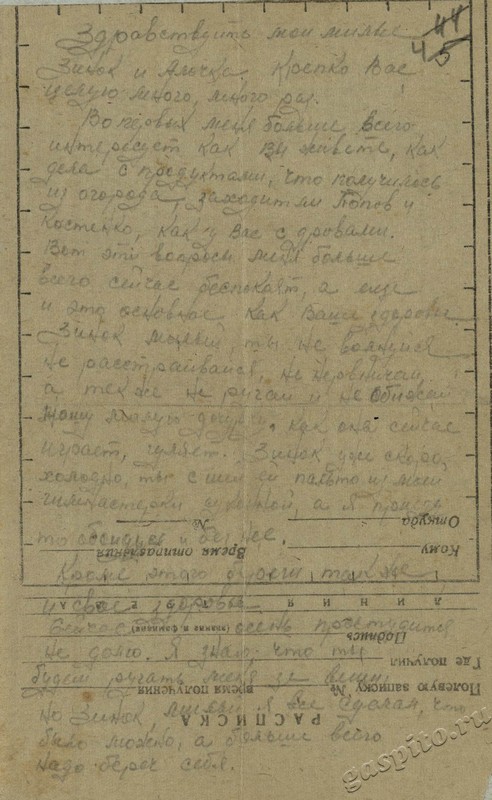 44
45
Здравствуйте мои милые
Зинок и Алочка. Крепко Вас
целую много, много раз.
Во первых меня больше всего
интересует как Вы живете, как
дела с продуктами, что получилось
из огорода, заходит ли Попов и
Костенко, как у Вас с дровами.
Вот эти вопросы меня больше
всего сейчас беспокоят, а еще
и это основное как Ваше здоровье.
Зинок милый, ты не волнуйся
не расстраивайся, не нервничай,
а также не ругай и не обижай
нашу милую дочурку, как она сейчас
играет, гуляет. Зинок уже скоро
холодно, ты сшей ей пальто из моей
гимнастерки суконной, а я
то обойдусь и без нее.
Кроме этого береги также
и свое здоровье.
Сейчас осень простудится
не долго. Я знаю, что ты
будеш ругать меня за вещи,
но Зинок, милый я все сделал, что
было можно, а больше всего
надо береч себя.
Откуда
Кому
№
Время отправления
ЛИНИЯ
(звание и фамилия)
Подпись
Где получил
Полевую записку №
время получения
РАСПИСКА
gaspiko.ru